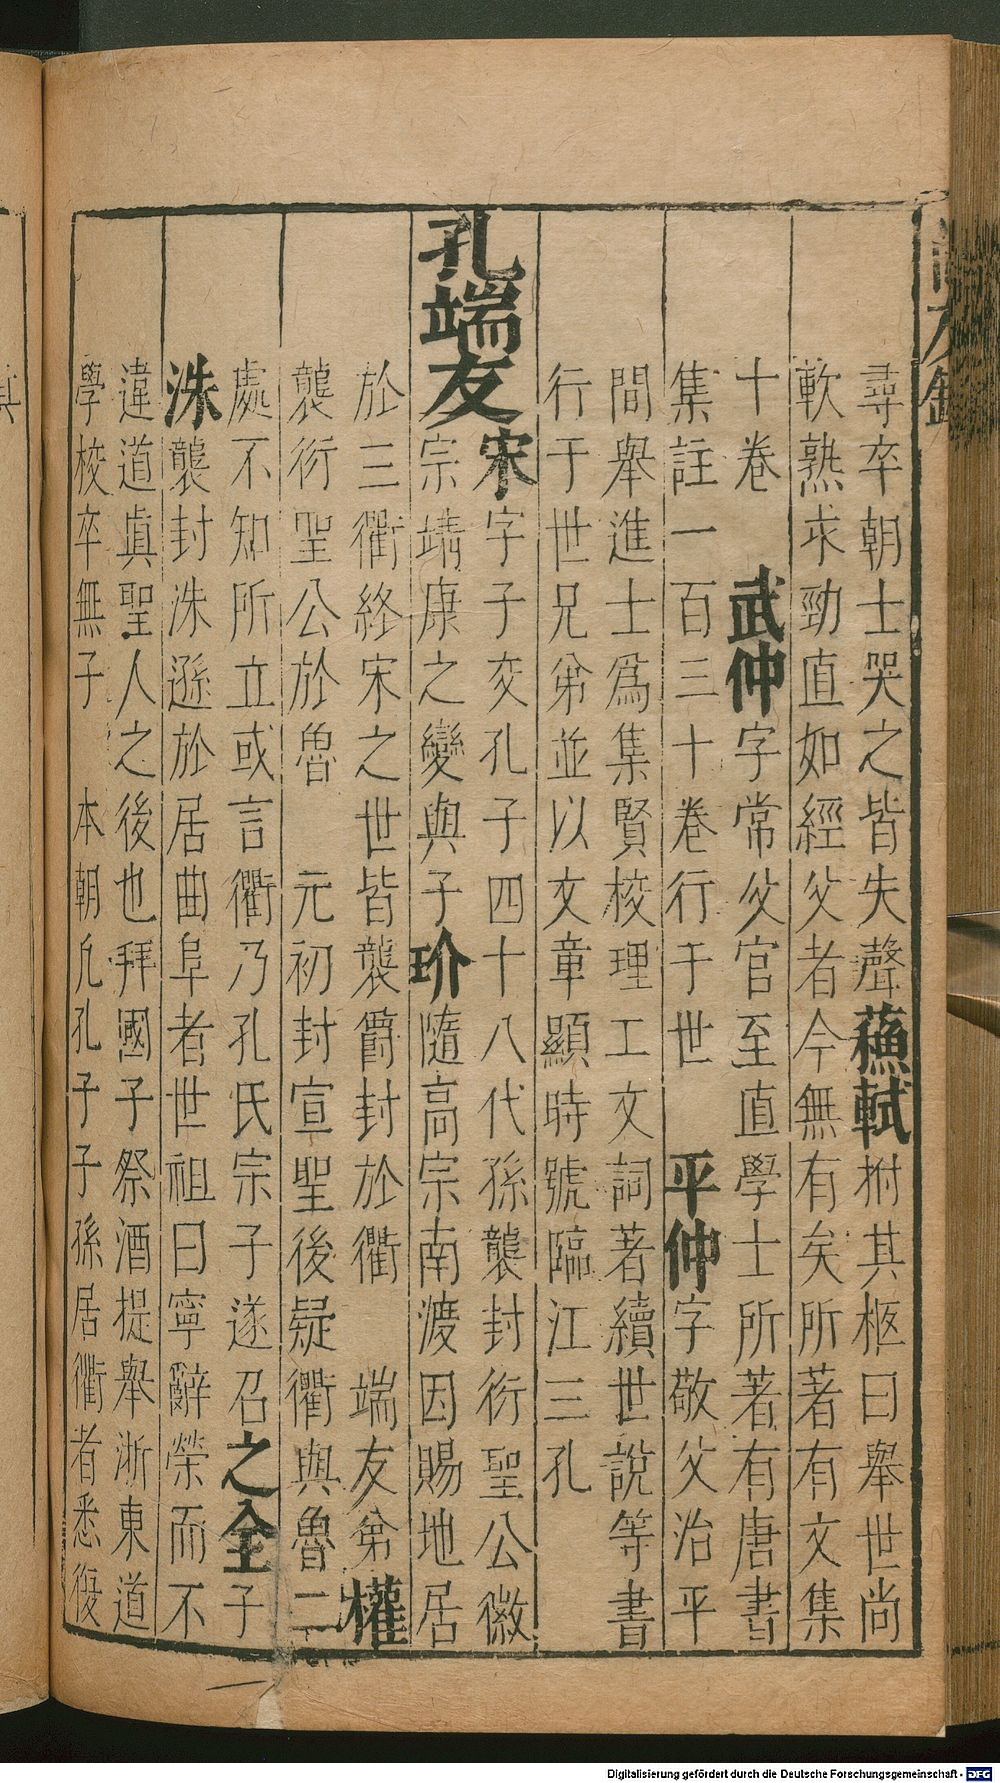 尋卒朝士哭之皆失聲蘓軾拊其柩曰舉世尚
軟熟求勁直如經父者今無有矣所著有文集
十卷 武仲字常父官至直學士所著有唐書
集註一百三十卷行于世 平仲字敬父治平
間舉進士爲集賢校理工文詞著續世說等書
行于世兄弟並以文章顯時號臨江三孔
孔端友宋字子交孔子四十八代孫襲封衍聖公徽
宗靖康之變與子玠隨高宗南渡因賜地居
於三衢終宋之世皆襲爵封於衢 端友弟權
襲衍聖公於魯 元初封宣聖後疑衢與魯二
處不知所立或言衢乃孔氏宗子遂召之全子
洙襲封洙遜於居曲阜者世祖曰寧辭榮而不
違道眞聖人之後也拜國子祭酒提舉浙東道
學校卒無子 本朝凡孔子子孫居衢者悉復
Digitalisierung gefördert durch die Deutsche Forschungsgemeinschaft - DFG